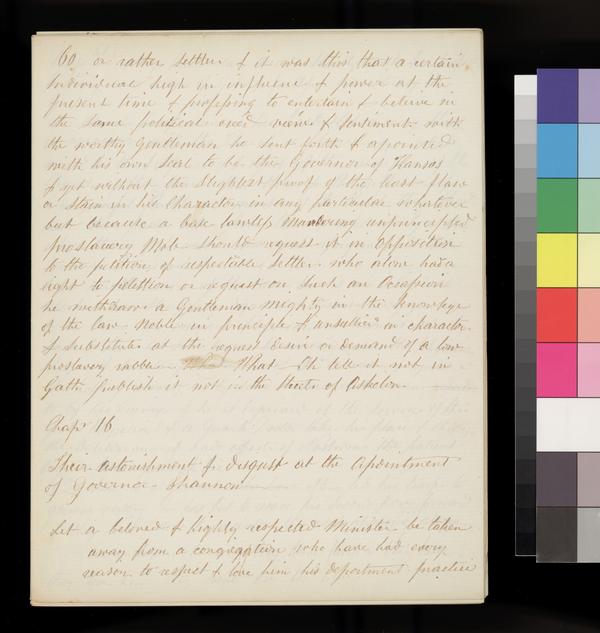 60 or rather settlers & it was this that a certain
Individual high in influence & power at the
present time & professing to entertain & believe in
the same political creed views & sentiments with
the worthy Gentleman he sent forth & apointed
with his own Seal to be the Governor of Kansas
& yet without the Slightest proof of the least flaw
or Stain in his Character in any particular whatever
but because a base lawless Murdering unprincipled
proslavery Mob should request it in opposition
to the petition of respectable Settlers who alone had a
right to petition or request on Such an Occasion
he withdraws a Gentleman mighty in the knowlege
of the law noble in principle & unsullied in character
& Substitutes at the request desire or demand of a low
proslavery rabble What Oh tell it not in
Gath publish it not in the Streets of Askelon
Chapr 16
Their astonishment & disgust at the Apointment
of Governor Shannon
Let a beloved & highly respected Minister be taken
away from a congregation who have had every
reason to respect & love him his deportment practice